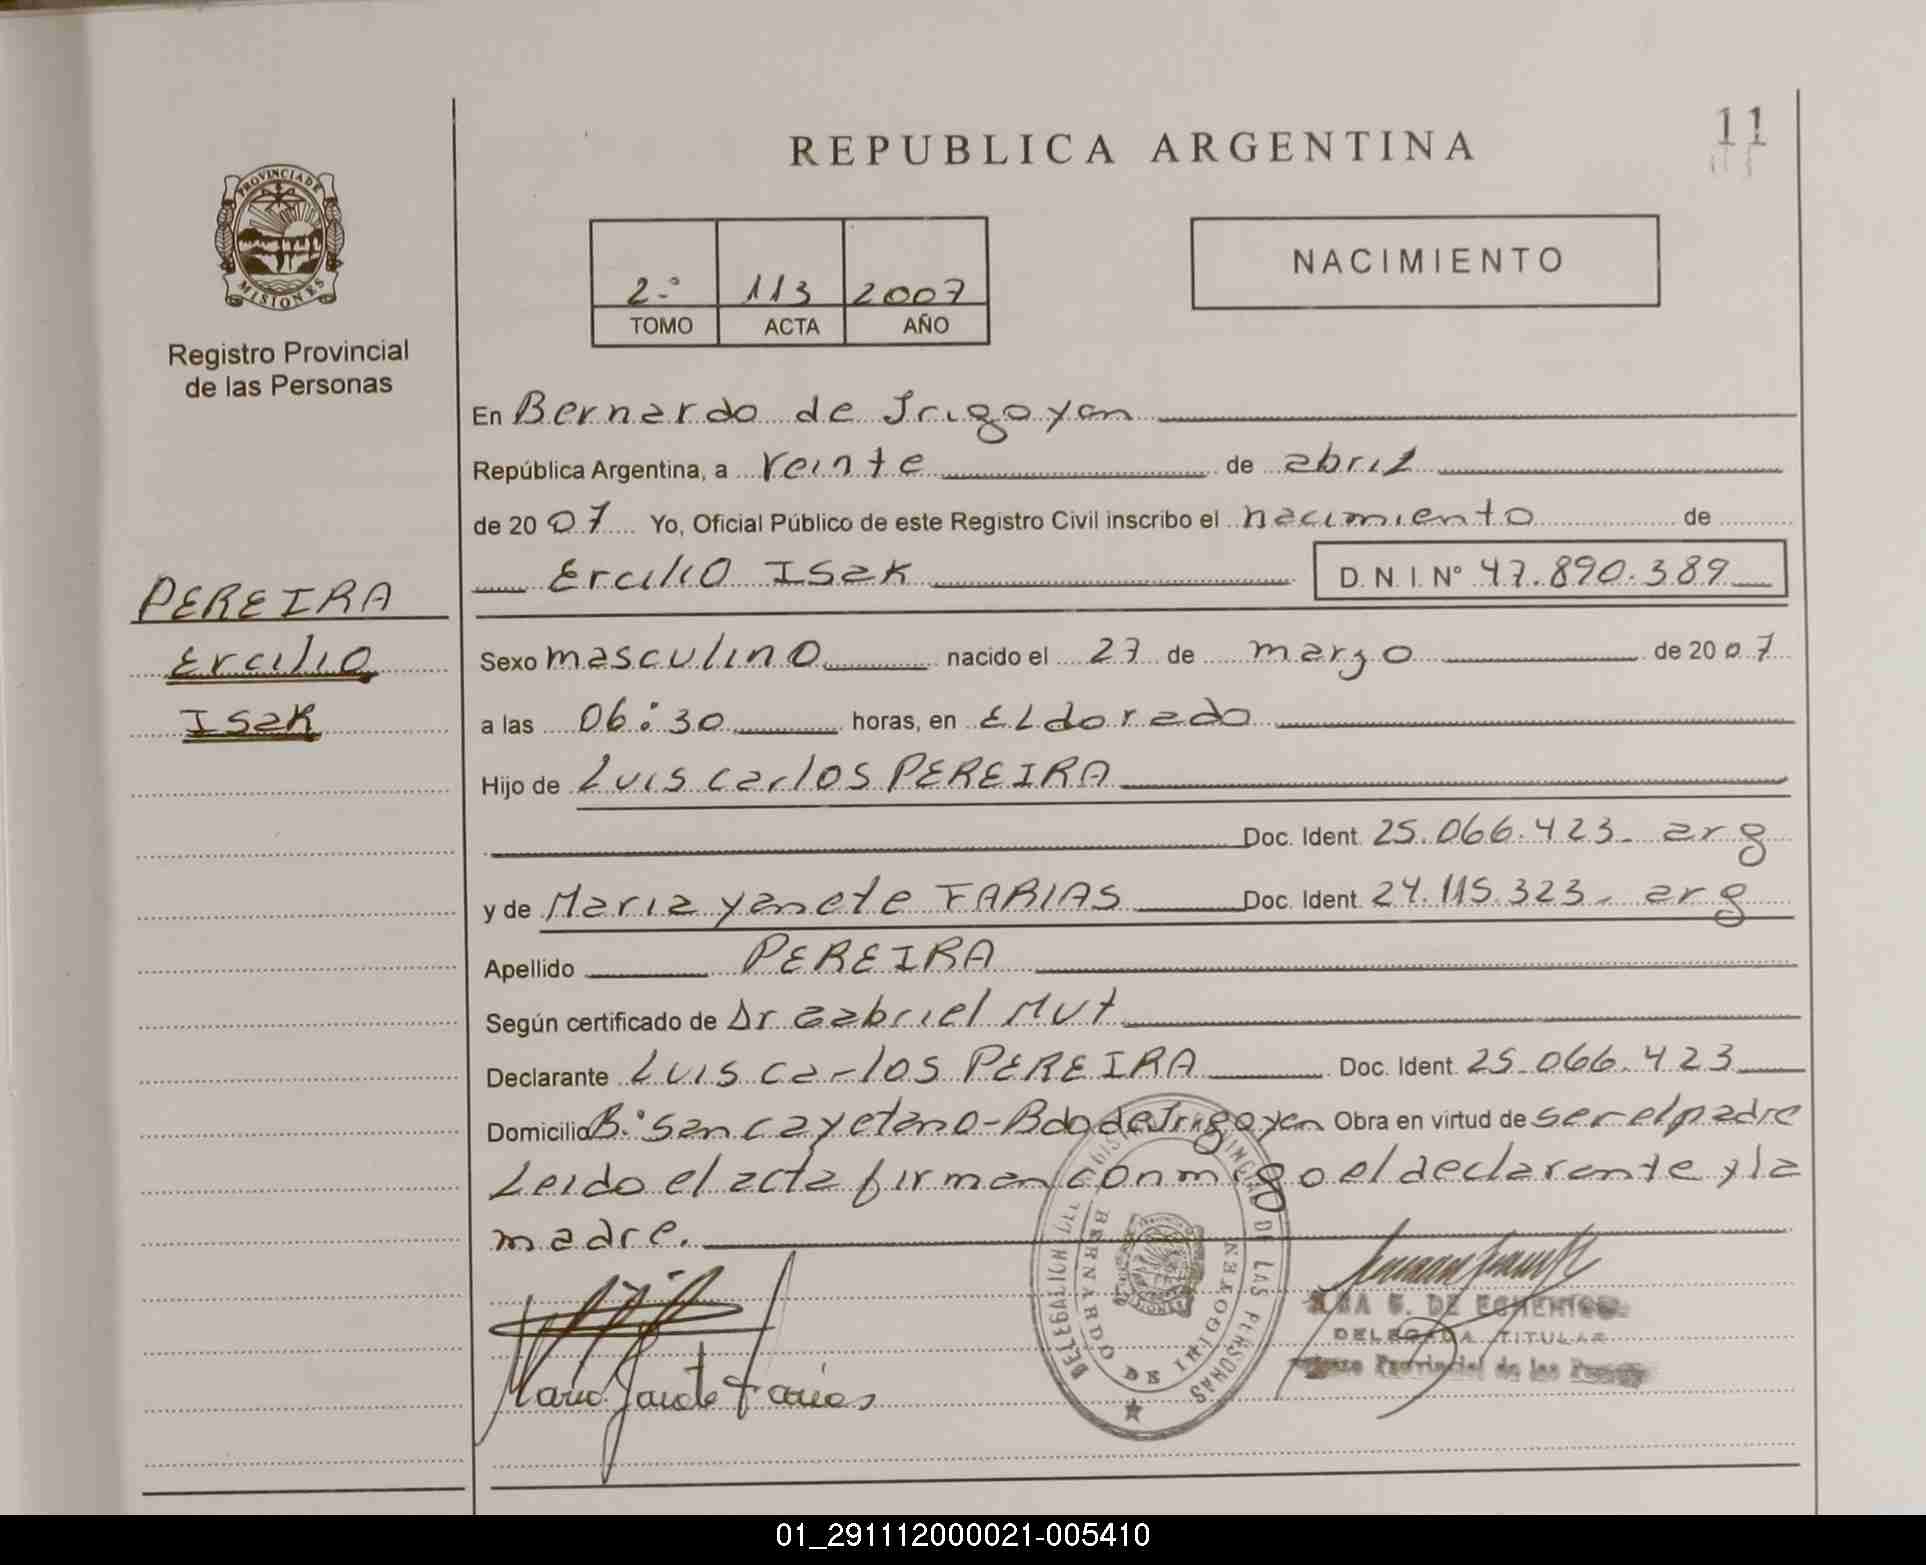 11
REPUBLICA ARGENTINA
PROVINCIA DE MISIONES
Registro Provincial
de las Personas
2.° 113 2007
TOMO ACTA AÑO
NACIMIENTO
En Bernardo de Irigoyen
República Argentina, a veinte de abril
de 2007 Yo, Oficial Público de este Registro Civil inscribo el nacimiento de
Ercilio Isak D. N. I. N° 47.890.389
PEREIRA
Ercilio
Isak
Sexo masculino nacido el 27 de marzo de 2007
a las 06:30 horas, en Eldorado
Hijo de Luis Carlos PEREIRA
Doc. Ident. 25.066.423- arg
y de Maria Yanete FARIAS Doc. Ident. 24.115.323- arg
Apellido PEREIRA
Según certificado de Dr Gabriel Mut
Declarante Luis Carlos PEREIRA Doc. Ident. 25.066.423
Domicilio B.° San Cayetano - Bdo de Irigoyen Obra en virtud de ser el padre
Leido el acta firman conmigo el declarante y la
madre.
DELEGACION DEL REGISTRO PROVINCIAL DE LAS PERSONAS
BERNARDO DE IRIGOYEN
DELEGADA TITULAR
Provincial de las
Maria Janete Farias
01_291112000021-005410